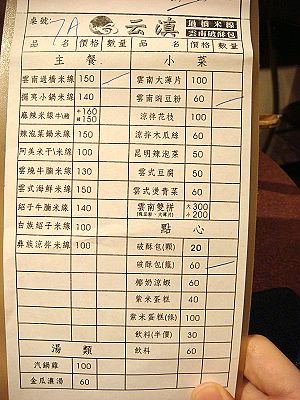 桌號 7A 云滇 過橋米線
雲南破酥包
品名 價格 數量 品名 價格 數量
主餐 小菜
雲南過橋米線 150 雲南大薄片 100
擺夷小鍋米線 140 雲南豌豆粉 60
麻辣米線牛/豬 牛160 豬150 涼拌花枝 100
辣泡菜鍋米線 150 涼拌木瓜絲 60
阿美米干\米線 100 昆明辣泡菜 50
雲燒牛腩米線 130 雲式豆腐 50
雲式海鮮米線 150 雲式燙青菜 60
紹子牛腩米線 140 雲南雙拼 大300 小200
(豌豆粉、大薄片)
白族紹子米線 100 點心
彝族涼拌米線 100 破酥包(顆) 20
破酥包(籠) 60
椰奶涼蝦 60
紫米蛋糕 40
紫米蛋糕(條) 100
湯類 飲料(半價) 30
汽鍋雞 100 飲料 60
金瓜濃湯 60